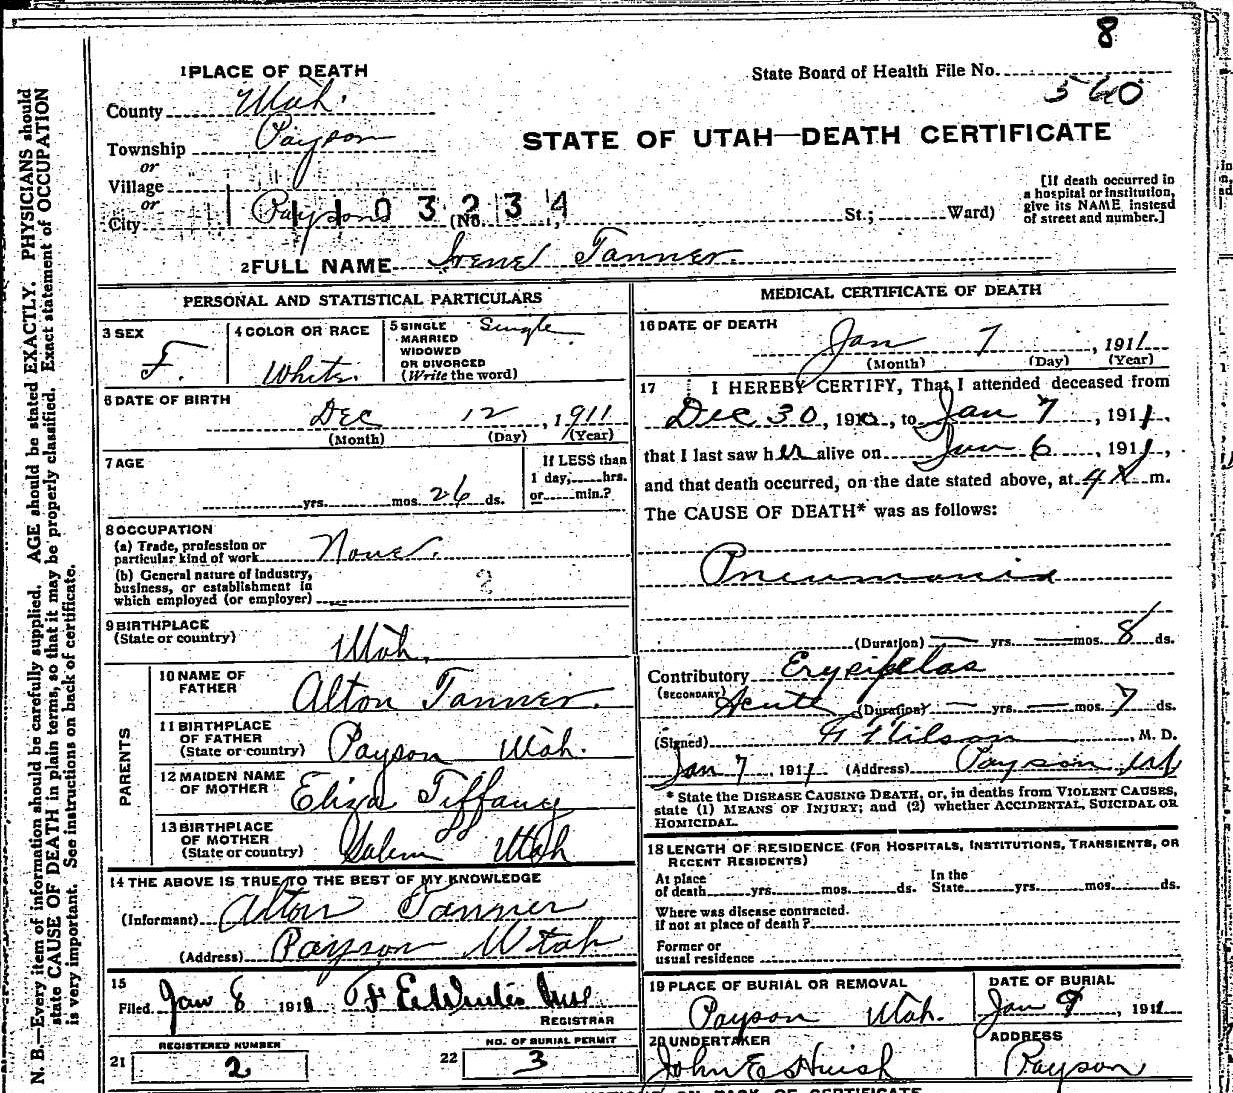 8
1 PLACE OF DEATH
State Board of Health File No. 560
County Utah.
STATE OF UTAH—DEATH CERTIFICATE
Township Payson
or
Village
or
City Payson (No. St.; Ward)
1 1 1 0 3 2 3 4
[If death occurred in
a hospital or institution,
give its NAME instead
of street and number.]
2 FULL NAME Irene Tanner.
PERSONAL AND STATISTICAL PARTICULARS
3 SEX F.
4 COLOR OR RACE White.
5 SINGLE Single
MARRIED
WIDOWED
OR DIVORCED
(Write the word)
6 DATE OF BIRTH
Dec 12, 1911
(Month) (Day) (Year)
7 AGE
yrs. mos. 26 ds.
If LESS than
1 day, hrs.
or min.?
8 OCCUPATION
(a) Trade, profession or
particular kind of work None.
(b) General nature of industry,
business, or establishment in
which employed (or employer)
9 BIRTHPLACE
(State or country) Utah.
PARENTS
10 NAME OF
FATHER Alton Tanner.
11 BIRTHPLACE
OF FATHER
(State or country) Payson Utah.
12 MAIDEN NAME
OF MOTHER Eliza Tiffany
13 BIRTHPLACE
OF MOTHER
(State or country) Salem Utah
14 THE ABOVE IS TRUE TO THE BEST OF MY KNOWLEDGE
(Informant) Alton Tanner
(Address) Payson Utah
15
Filed Jan 8 191
REGISTRAR
21 REGISTERED NUMBER
2
22 NO. OF BURIAL PERMIT
3
MEDICAL CERTIFICATE OF DEATH
16 DATE OF DEATH
Jan 7, 1911
(Month) (Day) (Year)
17 I HEREBY CERTIFY, That I attended deceased from
Dec 30, 1910, to Jan 7, 1911,
that I last saw her alive on Jan 6, 1911,
and that death occurred, on the date stated above, at 4 m.
The CAUSE OF DEATH* was as follows:
Pneumonia
(Duration) — yrs. — mos. 8 ds.
Contributory Erysipelas
(SECONDARY) Acute (Duration) — yrs. — mos. 7 ds.
(Signed) M. D.
Jan 7, 1911 (Address) Payson Ut
* State the DISEASE CAUSING DEATH, or, in deaths from VIOLENT CAUSES,
state (1) MEANS OF INJURY; and (2) whether ACCIDENTAL, SUICIDAL OR
HOMICIDAL.
18 LENGTH OF RESIDENCE (FOR HOSPITALS, INSTITUTIONS, TRANSIENTS, OR
RECENT RESIDENTS)
At place
of death yrs. mos. ds.
In the
State yrs. mos. ds.
Where was disease contracted.
if not at place of death?
Former or
usual residence
19 PLACE OF BURIAL OR REMOVAL
Payson Utah.
DATE OF BURIAL
Jan 9, 1911
20 UNDERTAKER
John E Huish
ADDRESS
Payson
N. B.—Every item of information should be carefully supplied. AGE should be stated EXACTLY. PHYSICIANS should
state CAUSE OF DEATH in plain terms, so that it may be properly classified. Exact statement of OCCUPATION
is very important. See instructions on back of certificate.